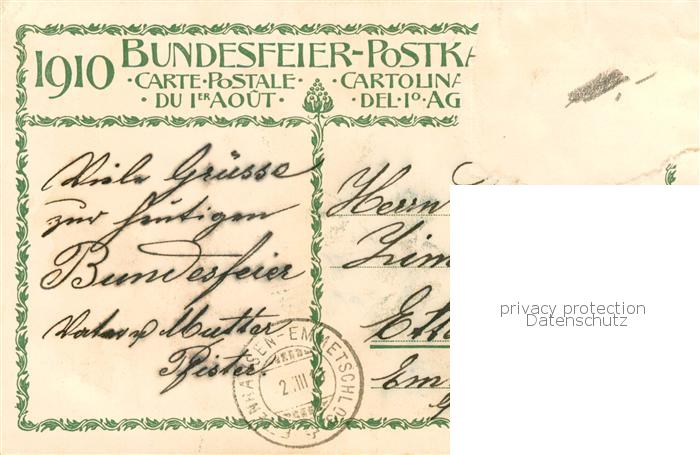 1910 BUNDESFEIER-POSTKA
·CARTE·POSTALE· ·CARTOLINA
·DU 1ER AOÛT· ·DEL·1O·AG
Viele Grüsse
zur heutigen
Bundesfeier
Vater u Mutter
Pfister.
Herrn
Zim
Etta
Em
EMMETSCHLOSS
2. III
privacy protection
Datenschutz